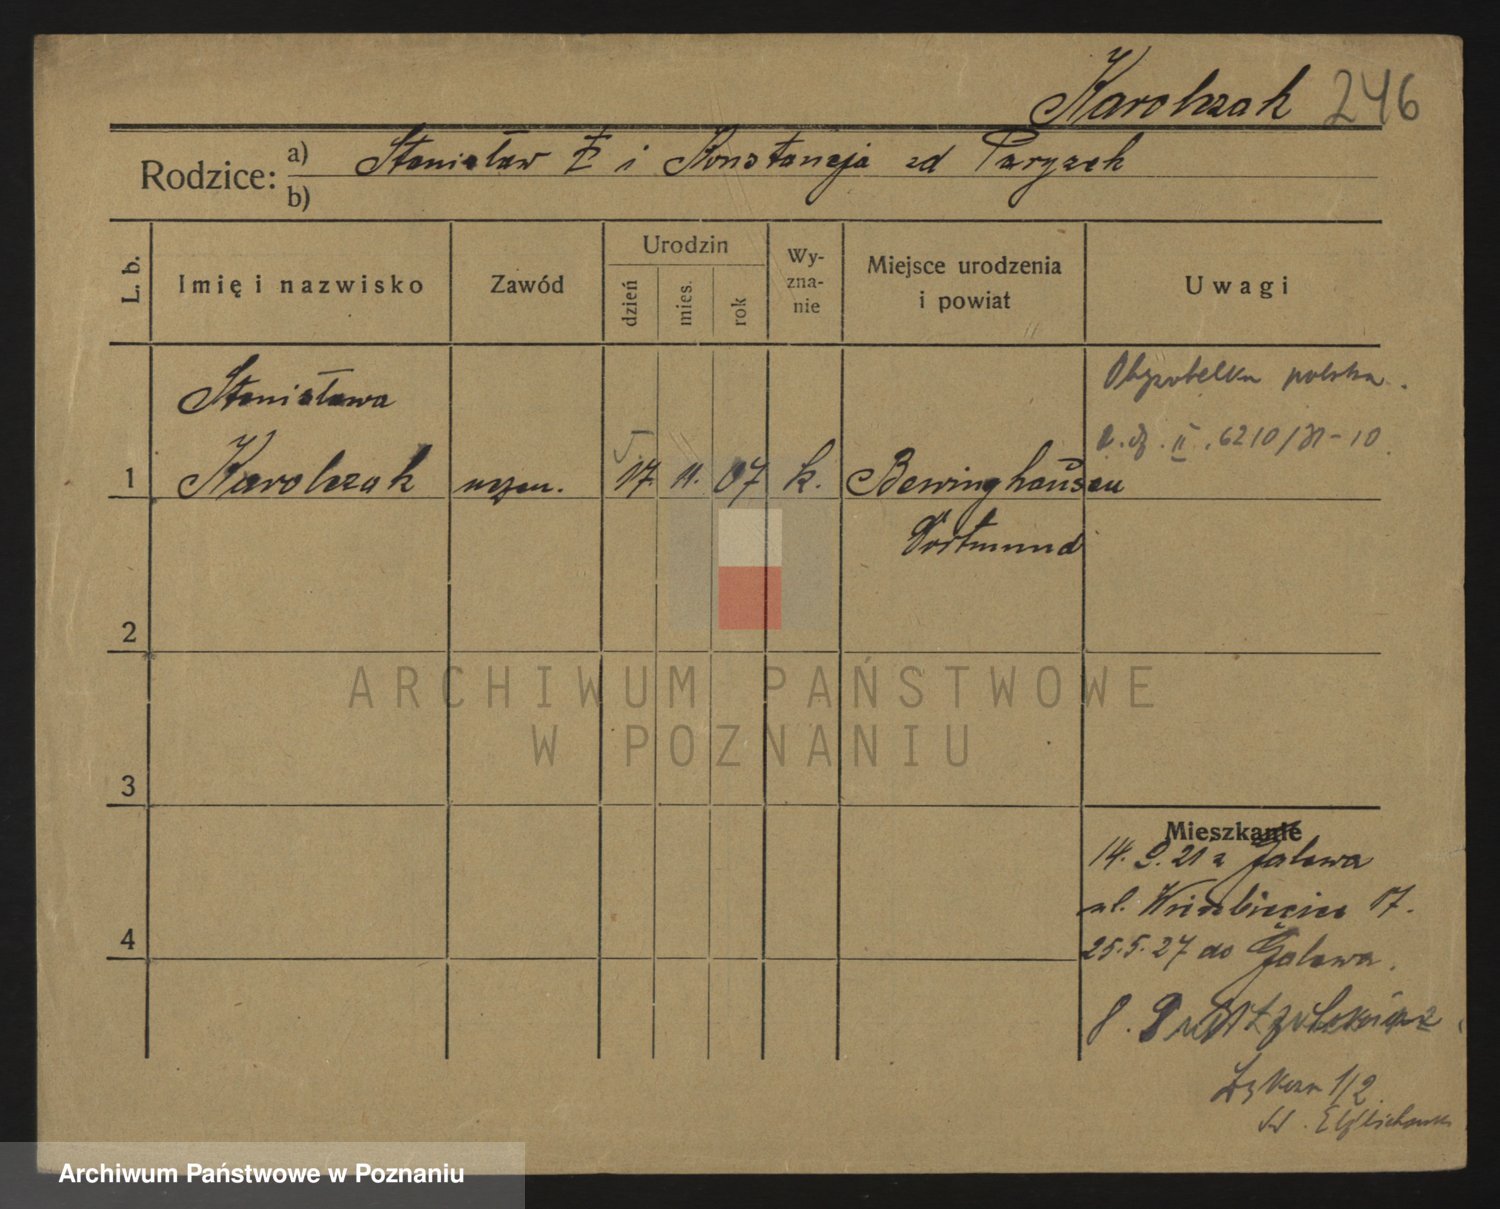 Karolczak 246
Rodzice: a) Stanisław Ł i Konstancja zd Paryzek
b)
L. b.
Imię i nazwisko
Zawód
Urodzin
dzień
mies.
rok
Wy-
zna-
nie
Miejsce urodzenia
i powiat
Uwagi
Stanisława
Obywatelka polska.
II. 6210/31-10
1 Karolczak uczen. 17. 11. 07 k. Bewinghausen
Dortmund
2
3
4
Mieszkanie
14. 9. 21 z
ul. Wierzbięcice 17.
25.5.27 do
1/2
ARCHIWUM PAŃSTWOWE
W POZNANIU
Archiwum Państwowe w Poznaniu